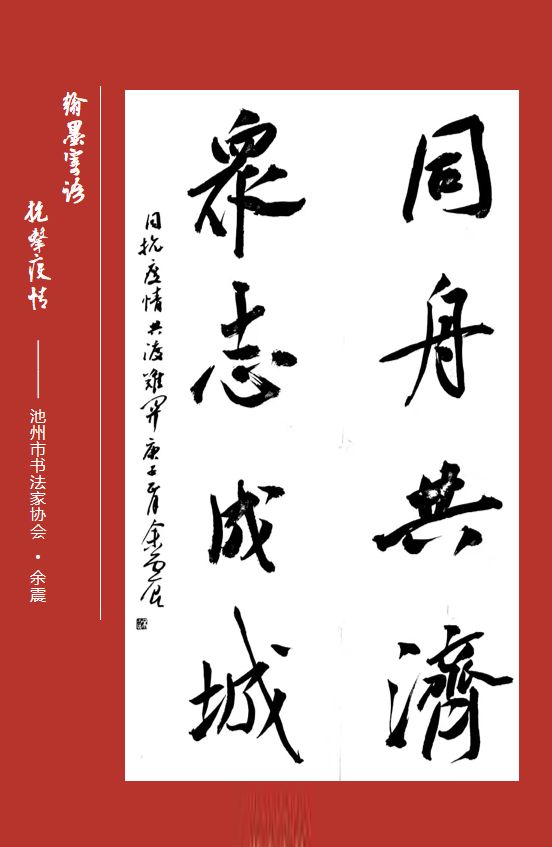 同舟共濟
眾志成城
同抗疫情共渡難関庚子正月余震
翰墨寄语
抗擊疫情
——池州市书法家协会·余震